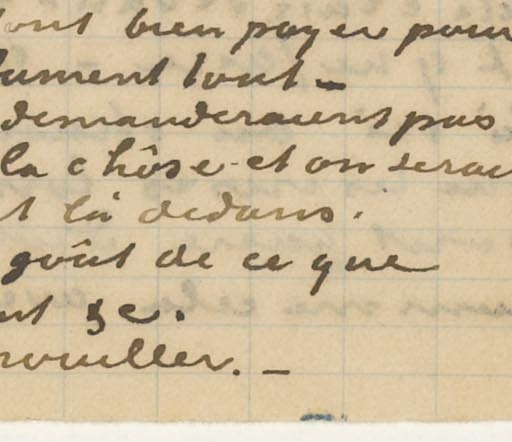 dont bien payer pour
lument tout –
demanderaient pas
la chôse et on serai
t là dedans.
goût de ce que
nt &c.
rouiller. –